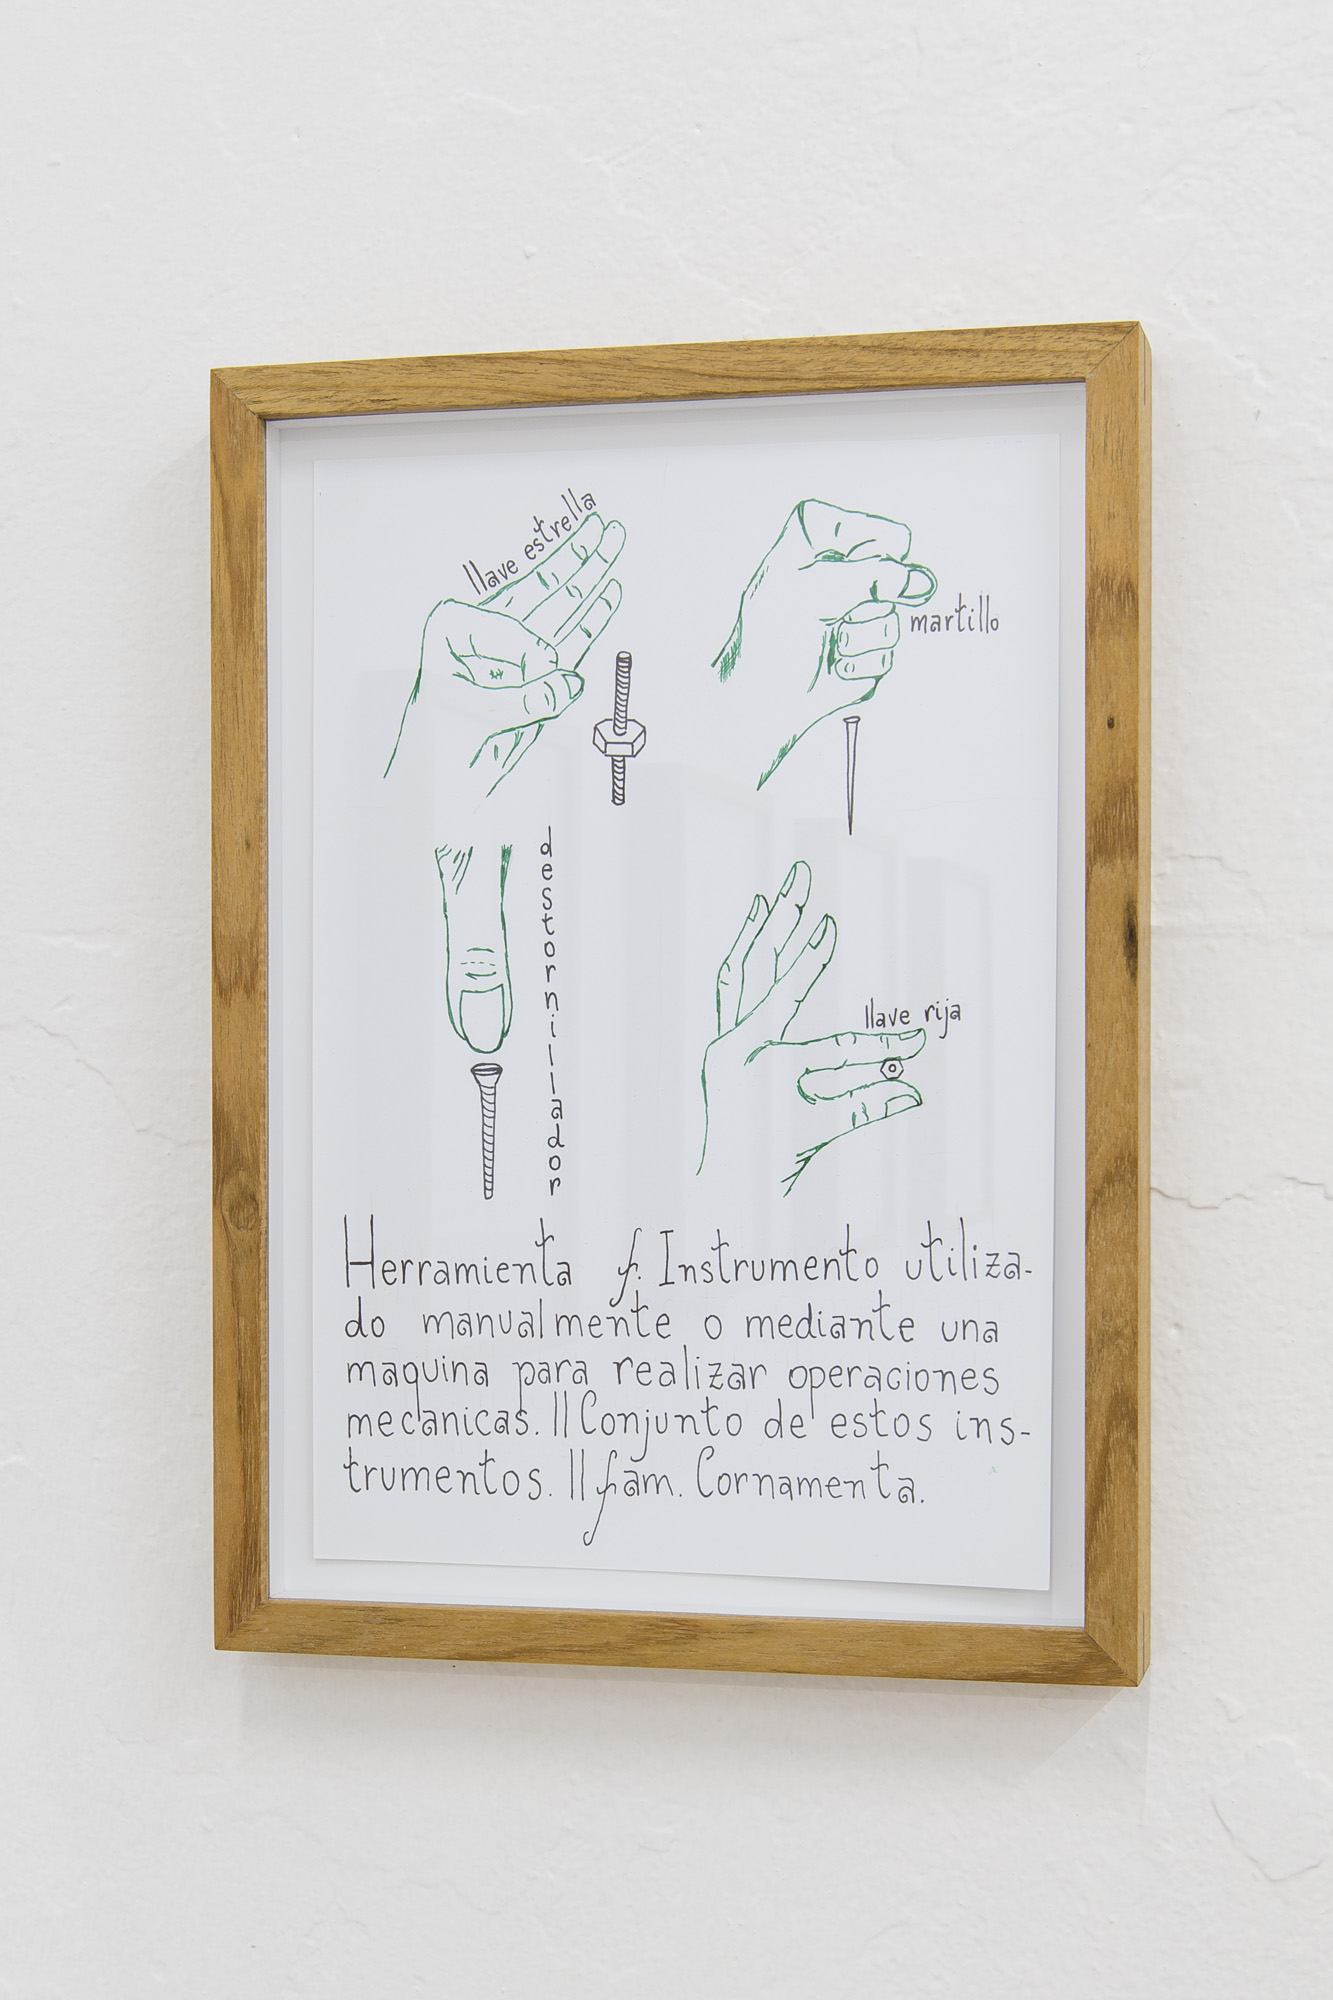 llave estrella
martillo
destornillador
llave rija
Herramienta f. Instrumento utiliza-
do manualmente o mediante una
maquina para realizar operaciones
mecanicas. || Conjunto de estos ins-
trumentos. || fam. Cornamenta.